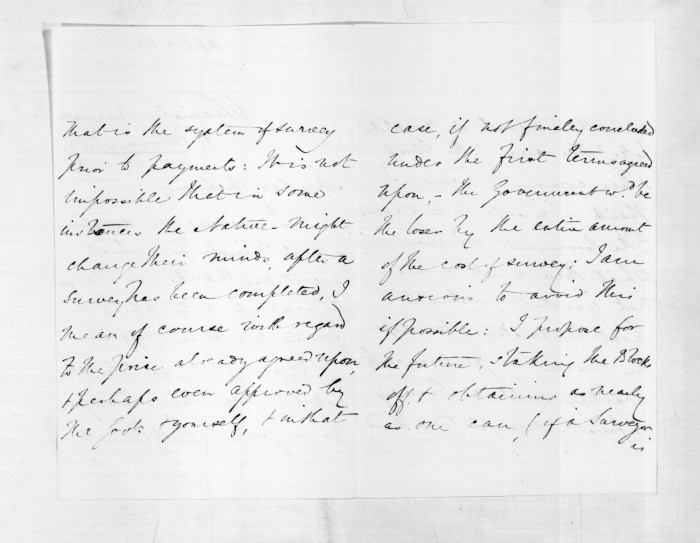 that is the system of survey
prior to payments: It is not
impossible that in some
instances the Natives might
change their minds, after a
survey has been completed, I
mean of course with regard
to the price already agreed upon,
& perhaps even approved by
the Govt. & yourself, & in that
case, if not finaley concluded
under the first terms agreed
upon, - the Government wd. be
the loser by the entire amount
of the cost of survey: I am
anxious to avoid this
if possible: I propose for
the future, staking the Blocks
off & obtaining as nearly
as one can, (if a Surveyor
is